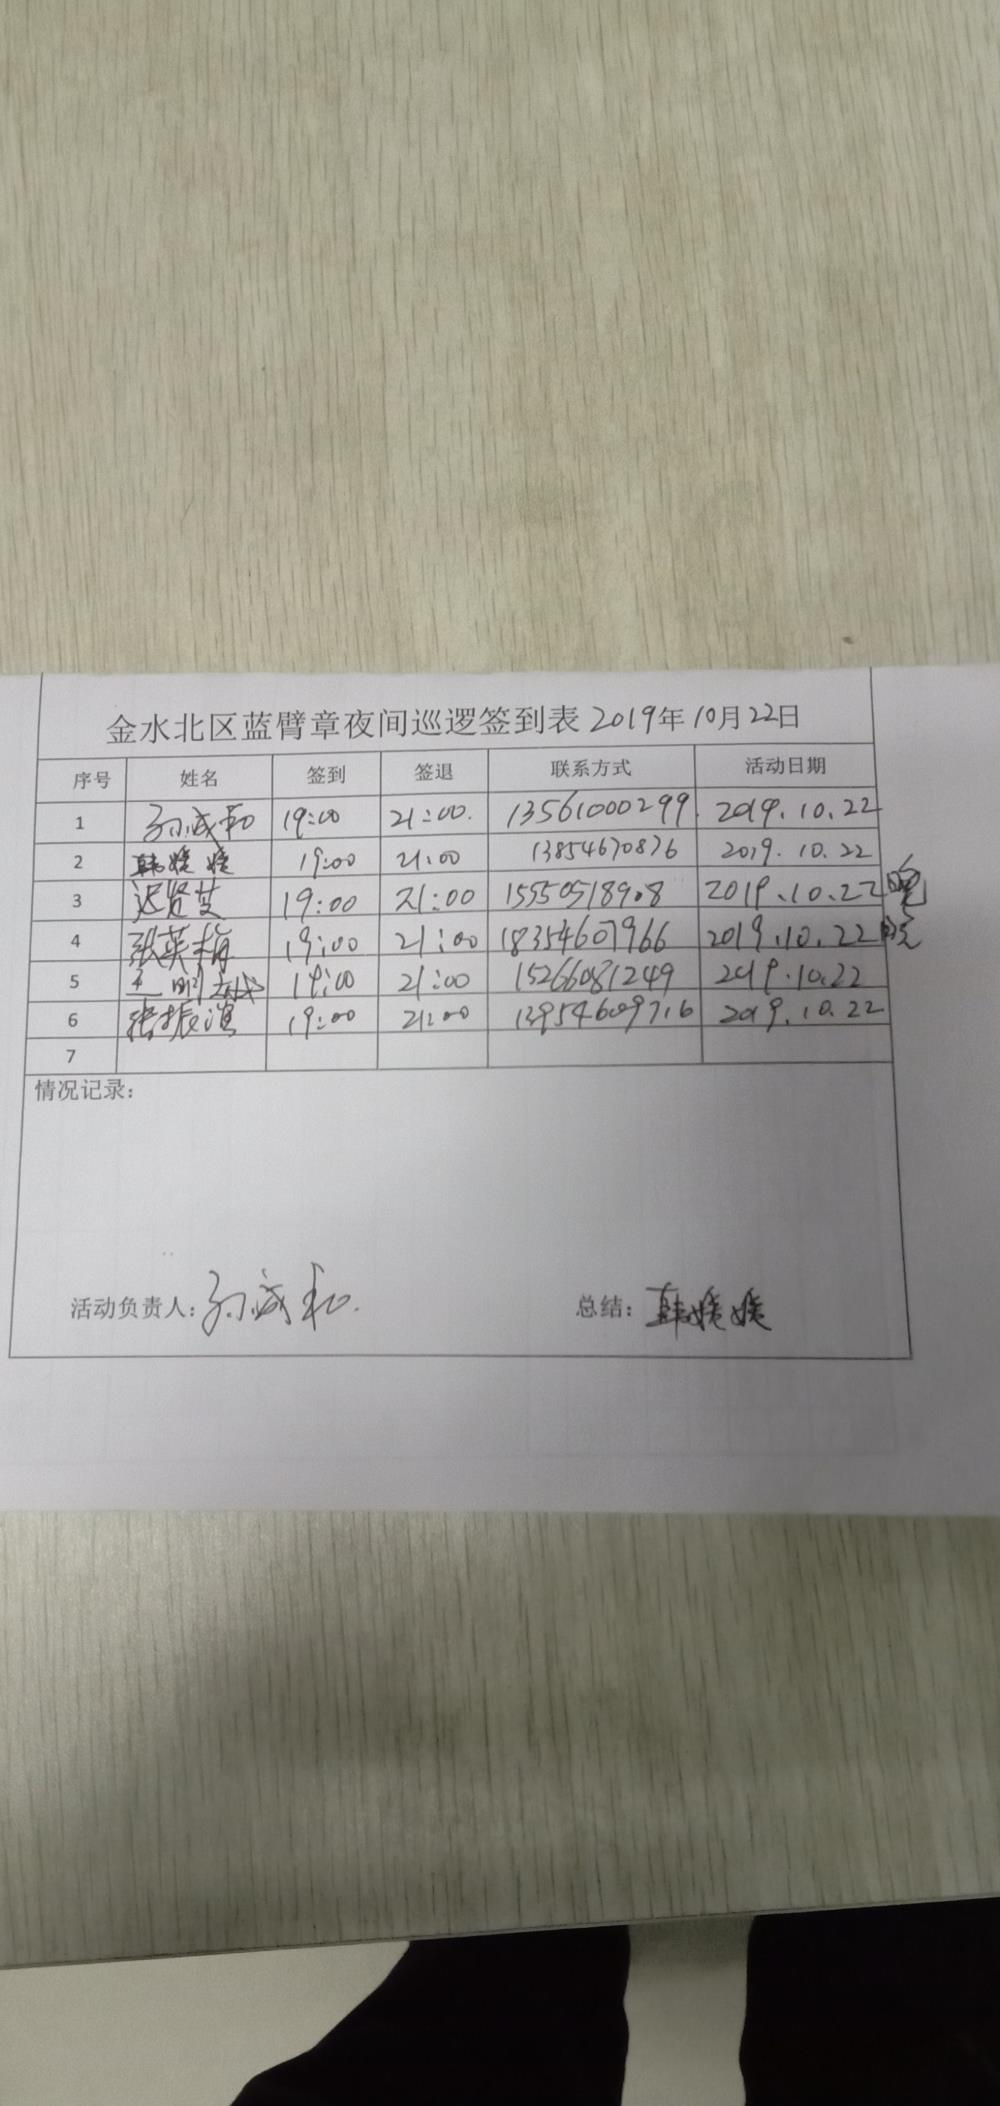 金水北区蓝臂章夜间巡逻签到表 2019年10月22日
序号 姓名 签到 签退 联系方式 活动日期
1 孙成和 19:00 21:00. 13561000299 2019.10.22
2 韩媛媛 19:00 21:00 13854670876 2019.10.22
3 迟贤英 19:00 21:00 15550518908 2019.10.22 晚
4 张英梅 19:00 21:00 18354607966 2019.10.22 晚
5 19:00 21:00 15266081249 2019.10.22
6 张振滨 19:00 21:00 13954609716 2019.10.22
7
情况记录:
活动负责人: 孙成和. 总结: 韩媛媛